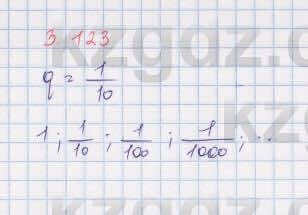 3.123
q = 1/10
1; 1/10; 1/100; 1/1000; ...
kzgdz.com